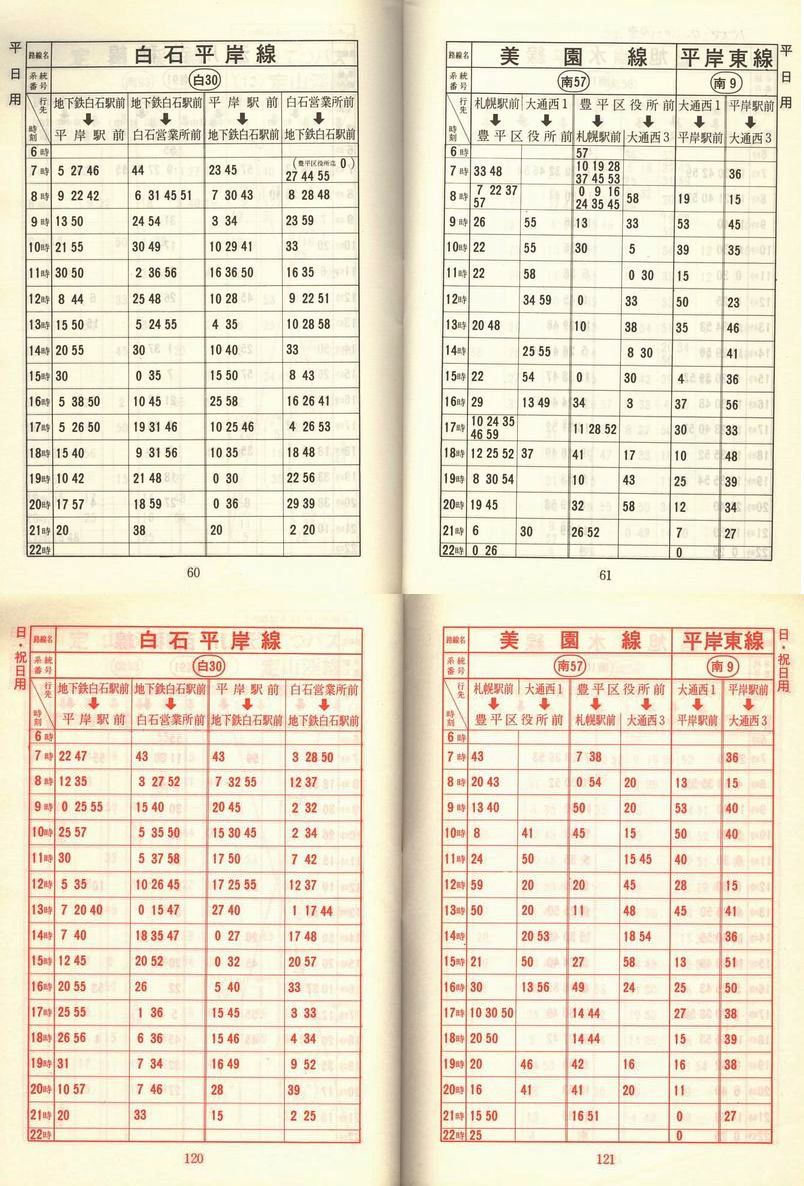 平日用
路線名 白石平岸線
系統番号 白30
行先 時刻 地下鉄白石駅前 地下鉄白石駅前 平岸駅前 白石営業所前
平岸駅前 白石営業所前 地下鉄白石駅前 地下鉄白石駅前
6時
7時 5 27 46 44 23 45 (豊平区役所迄 0) 27 44 55
8時 9 22 42 6 31 45 51 7 30 43 8 28 48
9時 13 50 24 54 3 34 23 59
10時 21 55 30 49 10 29 41 33
11時 30 50 2 36 56 16 36 50 16 35
12時 8 44 25 48 10 28 9 22 51
13時 15 50 5 24 55 4 35 10 28 58
14時 20 55 30 10 40 33
15時 30 0 35 15 50 8 43
16時 5 38 50 10 45 25 58 16 26 41
17時 5 26 50 19 31 46 10 25 46 4 26 53
18時 15 40 9 31 56 10 35 18 48
19時 10 42 21 48 0 30 22 56
20時 17 57 18 59 0 36 29 39
21時 20 38 20 2 20
22時
60
平日用
路線名 美園線 平岸東線
系統番号 南57 南9
行先 時刻 札幌駅前 大通西1 豊平区役所前 大通西1 平岸駅前
豊平区役所前 札幌駅前 大通西3 平岸駅前 大通西3
6時 57
7時 33 48 10 19 28 37 45 53 36
8時 7 22 37 57 0 9 16 24 35 45 58 19 15
9時 26 55 13 33 53 45
10時 22 55 30 5 39 35
11時 22 58 0 30 15
12時 34 59 0 33 50 23
13時 20 48 10 38 35 46
14時 25 55 8 30 41
15時 22 54 0 30 4 36
16時 29 13 49 34 3 37 56
17時 10 24 35 46 59 11 28 52 30 33
18時 12 25 52 37 41 17 10 48
19時 8 30 54 10 43 25 39
20時 19 45 32 58 12 34
21時 6 30 26 52 7 27
22時 0 26 0
61
日・祝日用
路線名 白石平岸線
系統番号 白30
行先 時刻 地下鉄白石駅前 地下鉄白石駅前 平岸駅前 白石営業所前
平岸駅前 白石営業所前 地下鉄白石駅前 地下鉄白石駅前
6時
7時 22 47 43 43 3 28 50
8時 12 35 3 27 52 7 32 55 12 37
9時 0 25 55 15 40 20 45 2 32
10時 25 57 5 35 50 15 30 45 2 34
11時 30 5 37 58 17 50 7 42
12時 5 35 10 26 45 17 25 55 12 37
13時 7 20 40 0 15 47 27 40 1 17 44
14時 7 40 18 35 47 0 27 17 48
15時 12 45 20 52 0 32 20 57
16時 20 55 26 5 40 33
17時 25 55 1 36 15 45 3 33
18時 26 56 6 36 15 46 4 34
19時 31 7 34 16 49 9 52
20時 10 57 7 46 28 39
21時 20 33 15 2 25
22時
120
日・祝日用
路線名 美園線 平岸東線
系統番号 南57 南9
行先 時刻 札幌駅前 大通西1 豊平区役所前 大通西1 平岸駅前
豊平区役所前 札幌駅前 大通西3 平岸駅前 大通西3
6時
7時 43 7 38 36
8時 20 43 0 54 20 13 15
9時 13 40 50 20 53 40
10時 8 41 45 15 50 40
11時 24 50 15 45 40
12時 59 20 20 45 28 15
13時 50 20 11 48 45 41
14時 20 53 18 54 36
15時 21 50 27 58 13 51
16時 30 13 56 49 24 25 50
17時 10 30 50 14 44 27 38
18時 20 50 14 44 15 39
19時 20 46 42 16 16 38
20時 16 41 41 20 11
21時 15 50 16 51 0 27
22時 25 0
121